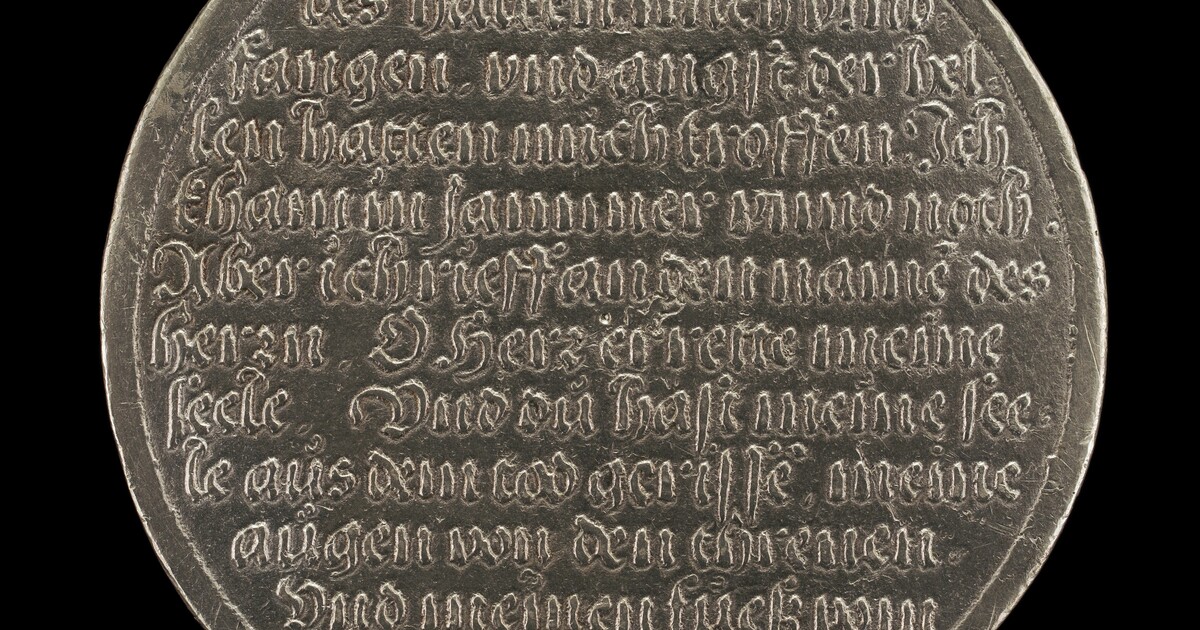 des hatten mich vmb-
fangen. vnd angst der hel-
len hatten mich troffen. Ich
kham in Jammer vnnd noth.
Aber ich rieff an den namē des
herzn. O Herz erette meine
seele. Vnd du hast meine see-
le aus dem tod gerissē, meine
augen von den threnen.
Vnd meinen fuesz vom